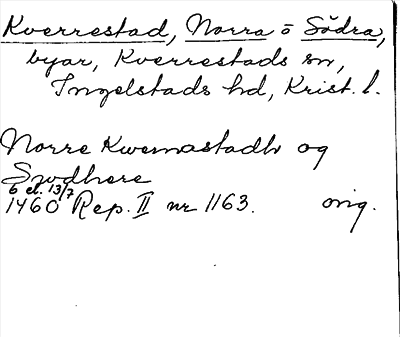 Kverrestad, Norra o Södra,
byar, Kverrestads sn,
Ingelstads hd, Krist. l.
Norre Kwernastadh og
Swdhere
6 el. 13/7
1460 Rep. II nr 1163. orig.